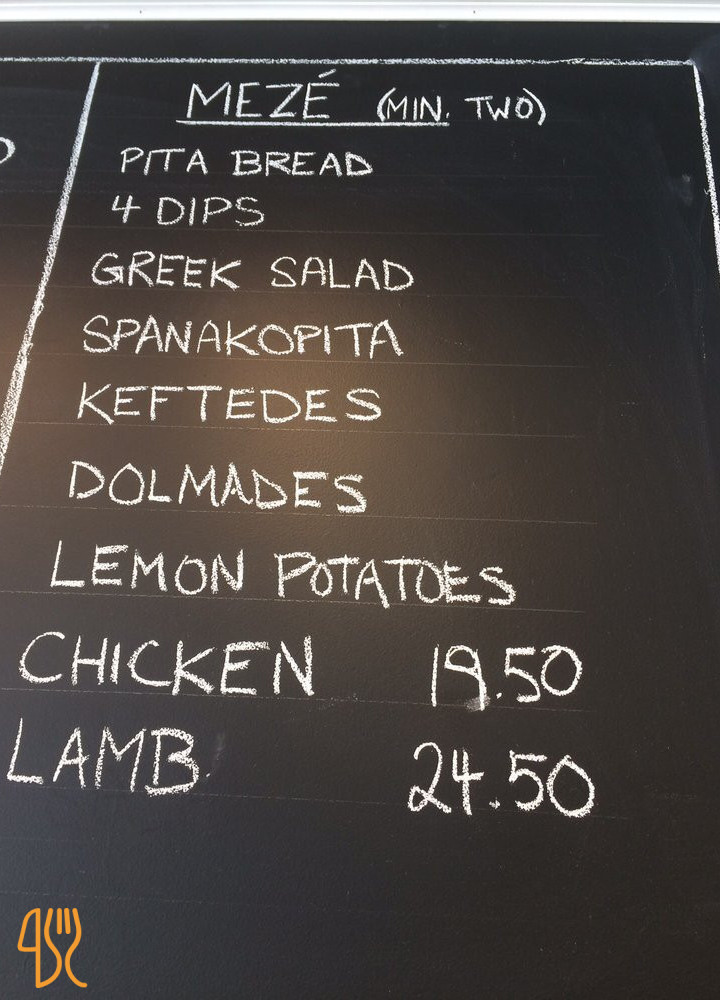 MEZÉ (MIN. TWO)
PITA BREAD
4 DIPS
GREEK SALAD
SPANAKOPITA
KEFTEDES
DOLMADES
LEMON POTATOES
CHICKEN 19.50
LAMB 24.50